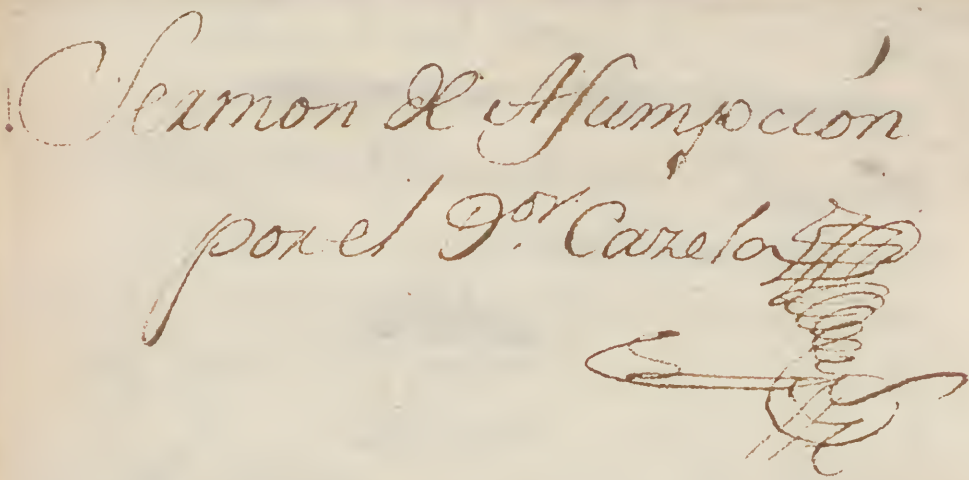 Sermon de Asumpcion
por el D.or Carela